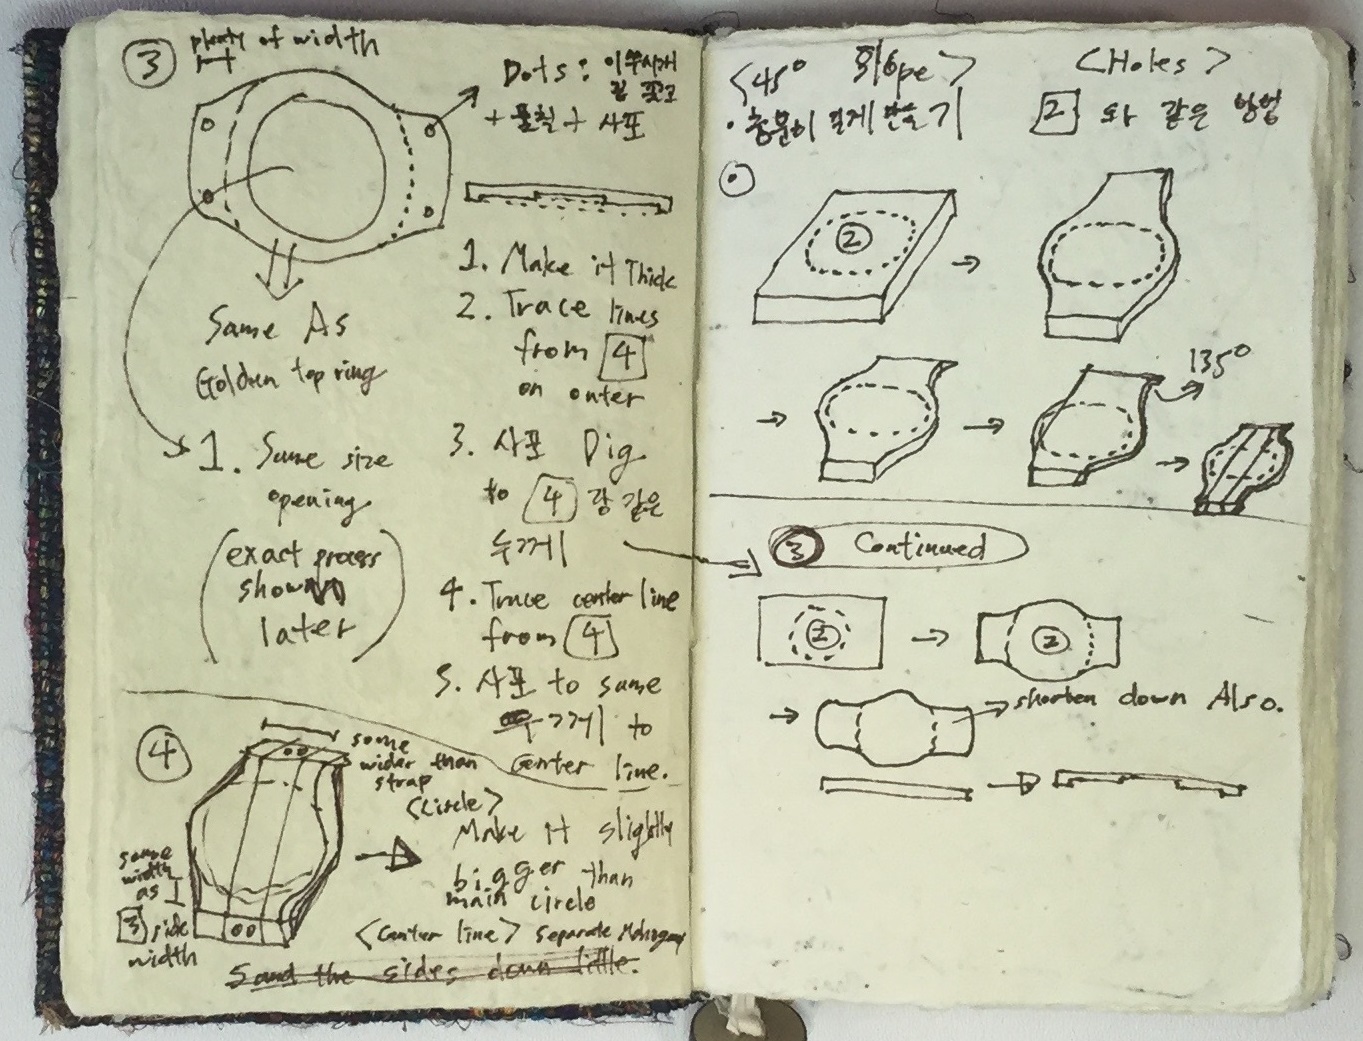 ③ plenty of width
Dots: 이쑤시개
+ 풀칠 + 사포
Same As
Golden top ring
1. Same size
opening
(exact process
shown
later)
1. Make it Thick
2. Trace lines
from 4
on outer
3. 사포 Dig
to 4 랑 같은
두께
4. Trace center line
from 4
5. 사포 to same
두께 to
Center line.
④
some
wider than
strap
some
width
as
3 side
width
<Circle>
Make it slightly
bigger than
main circle
<Center line> separate Mahogany
Sand the sides down little.
<45° Slope>
· 충분히 길게 만들기
<Holes>
2 와 같은 방법
2
135°
③ Continued
2
2
shorten down Also.